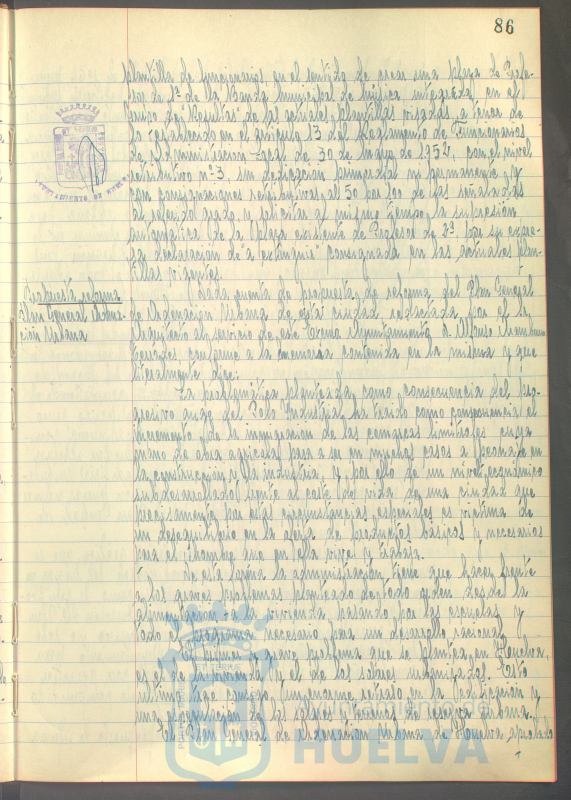 86
plantilla de funcionarios, en el sentido de crear una plaza de Profe-
sor de 1ª de la Banda Municipal de Música integrada en el
de las actuales plantillas visadas a tenor de
lo establecido en el artículo 13 del Reglamento de Funcionarios
de Administración Local de 30 de Mayo de 1952, con el nivel
retributivo nº 3, sin dedicación primordial ni permanente y
con consignaciones retributivas al 50 por 100 de las señaladas
al referido grado y solicitar al mismo tiempo la supresión
automática de la plaza existente de Profesor de 2ª por su expre-
sa declaración de "a extinguir" consignada en las actuales plan-
tillas vigentes.
Propuesta reforma
Plan General Ordena-
ción Urbana
Dada cuenta de propuesta de reforma del Plan General
de Ordenación Urbana de esta ciudad redactada por el Sr.
Arquitecto al servicio de este Excmo Ayuntamiento D. Alfonso
conforme a la memoria contenida en la misma y que
literalmente dice:
La problemática planteada como consecuencia del pro-
gresivo auge del Polo Industrial, ha traido como consecuencia el
incremento de la inmigración de las comarcas limítrofes cuya
mano de obra agrícola pasa a ser en muchos casos a peonaje en
la construcción y la industria, y por ello de un nivel económico
subdesarrollado frente al coste de vida de una ciudad que
precisamente por estas circunstancias especiales es víctima de
un desequilibrio en la oferta de productos básicos y necesarios
para el hombre que en ella vive y trabaja.
De esta forma la administración tiene que hacer frente
a los graves problemas planteados de todo orden desde la
alimentación a la vivienda pasando por las escuelas y
todo el programa necesario para un desarrollo racional.
El primer y grave problema que se plantea en Huelva,
es el de la vivienda y el de los solares urbanizados. Esto
último trae consigo un enorme retraso en la edificación y
una especulación de los solares y terrenos de reserva urbana.
El Plan General de Ordenación Urbana de Huelva aprobado
Ayuntamiento de
HUELVA